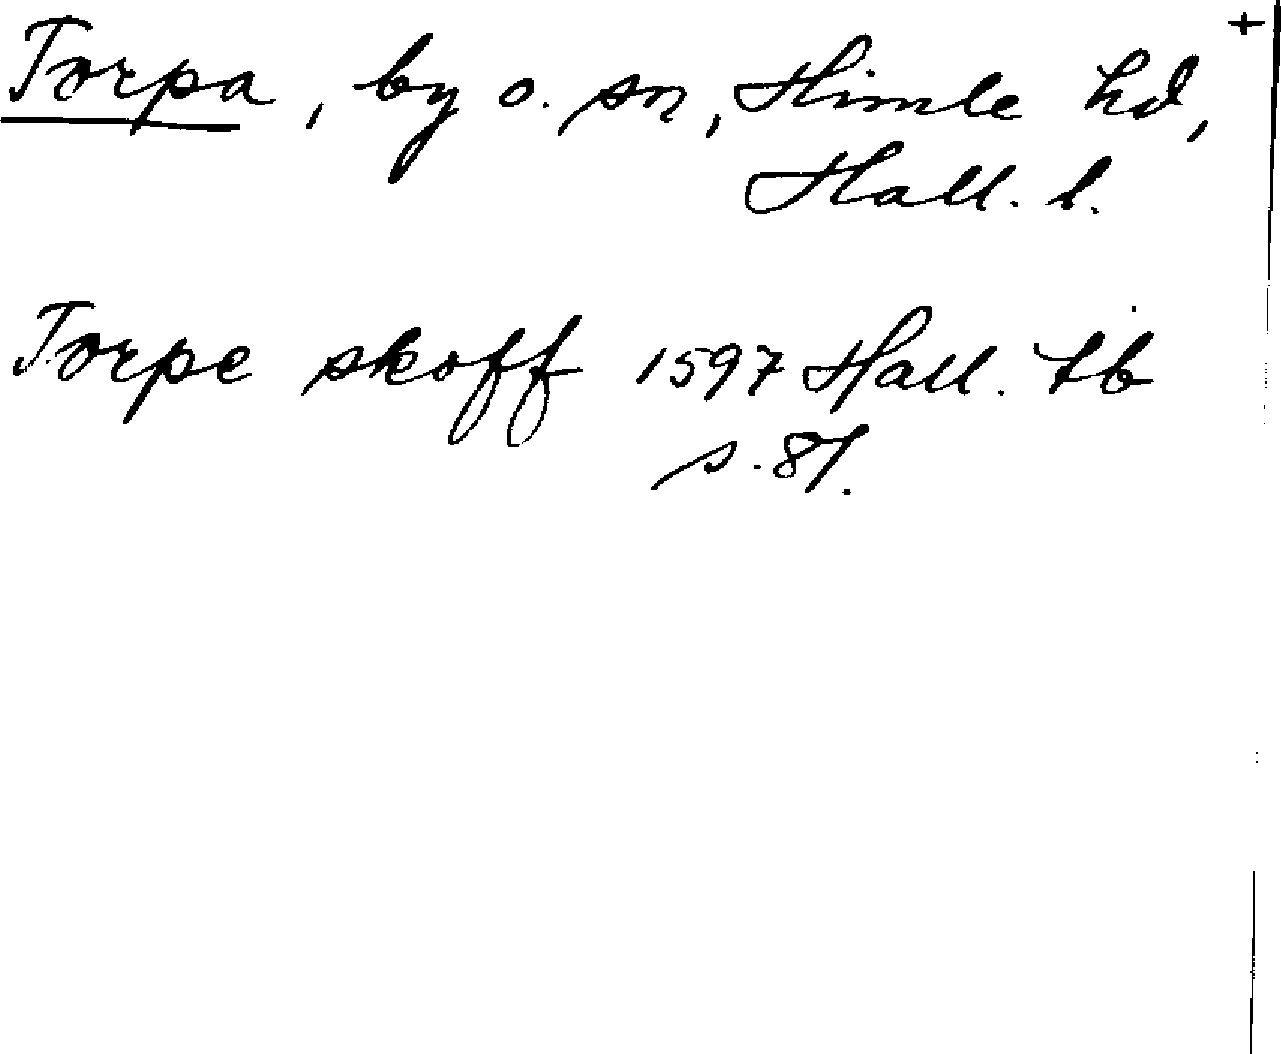 +
Torpa, by o. sn, Himle hd,
Hall. l.
Torpe skoff 1597 Hall. tb
s. 81.